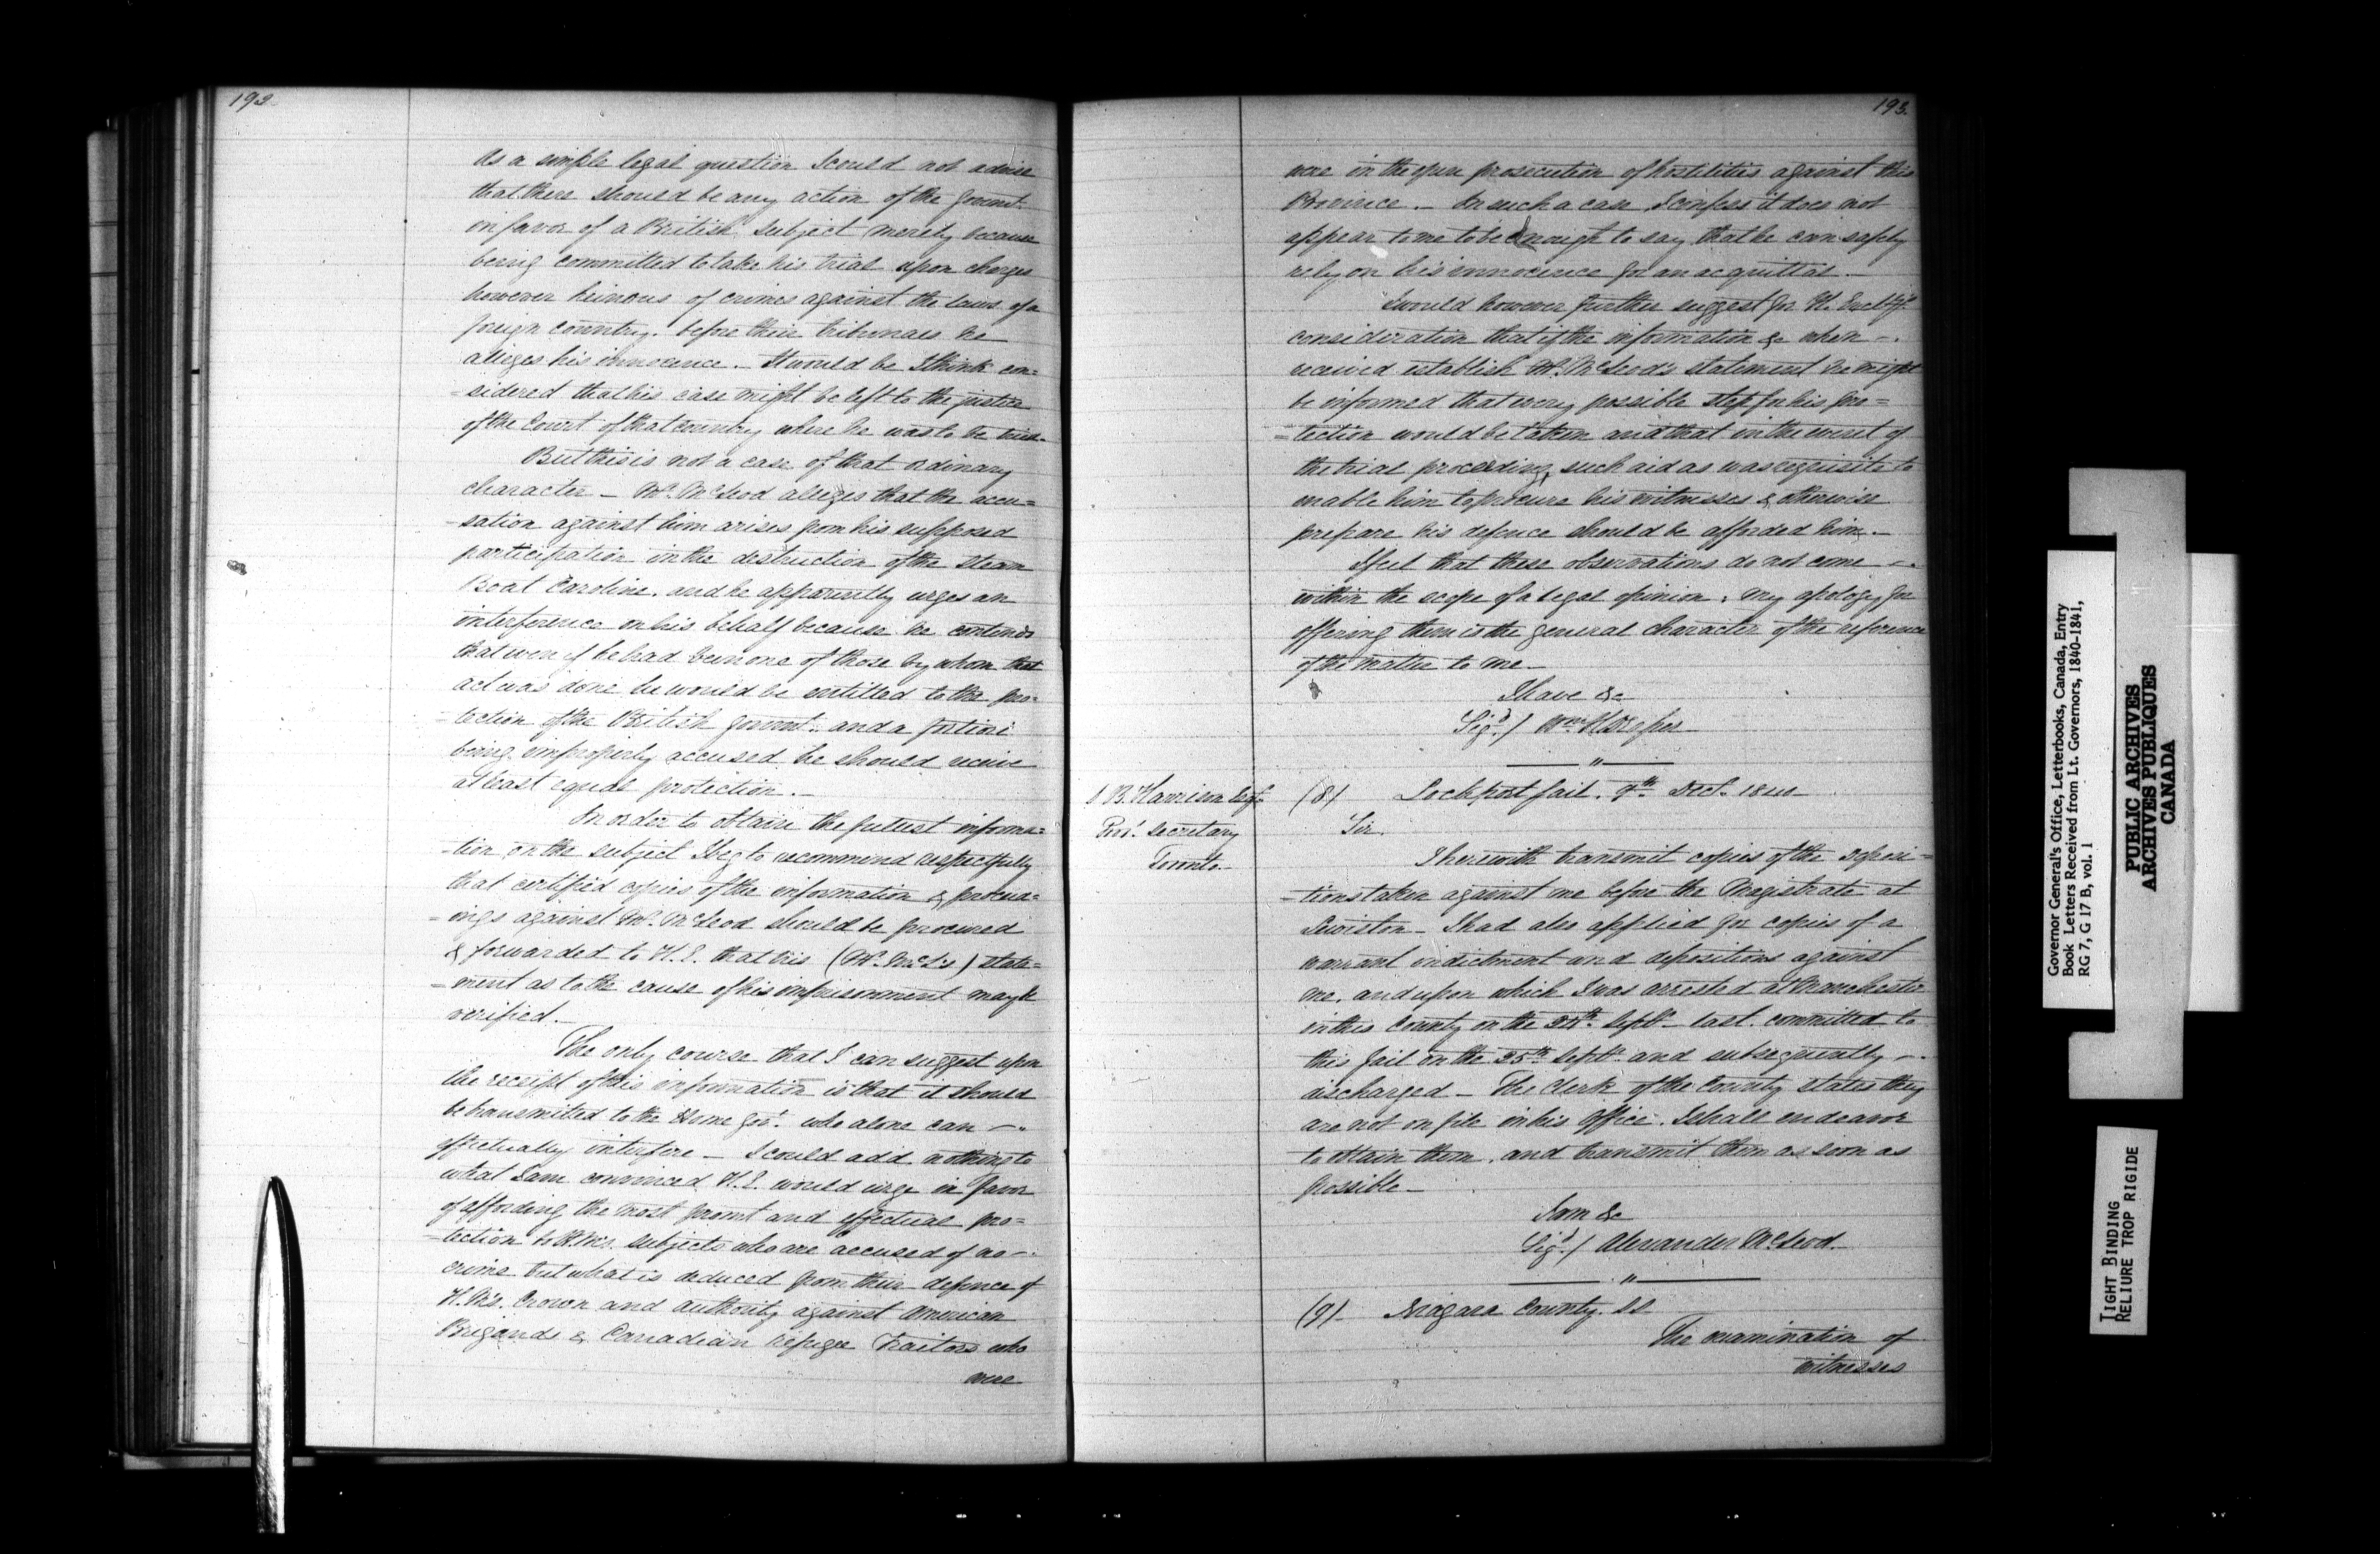 192
As a simple legal question I could not advise
that there should be any action of the Governt.
in favor of a British Subject merely because
being committed to take his trial upon charges
however heinous of crimes against the laws of a
foreign country. before their tribunals he
alleges his innocence. – It would be I think con=
=sidered that his case might be left to the justice
of the Court of that country where he was to be tried.
But this is not a case of that ordinary
character – Mr. McLeod alleges that the accu=
=sation against him arises from his supposed
participation in the destruction of the Steam
Boat Caroline. and he apparently urges an
interference on his behalf because he contends
that even if he had been one of those by whom that
act was done he would be entitled to the pro=
=tection of the British Governt. and a fortiori
being improperly accused he should receive
at least equal protection. –
In order to obtain the fullest informa=
=tion on the subject I beg to recommend respectfully
that certified copies of the information & proceed=
=ings against Mr. McLeod should be procured
& forwarded to H. E. that his (Mr. McL's) state=
=ment as to the cause of his imprisonment may be
verified. –
The only course that I can suggest upon
the receipt of this information is that it should
be transmitted to the Home Govt. who alone can –
effectually interfere – I could add nothing to
what I am convinced H. E. would urge in favor
of affording the most promt and effectual pro=
=tection to H. M's. subjects who are accused of no –
crime but what is deduced from their defence of
H. M's. Crown and authority against American
Brigands & Canadian refugee Traitors who
were
193.
were in the open prosecution of hostilities against this
Province. – In such a case I confess it does not
appear to me to be enough to say that he can safely
rely on his innocence for an acquittal. –
I would however further suggest for H. Excell'y's
consideration that if the information &c when –
received establish Mr. McLeod's statement he might
be informed that every possible step for his pro=
=tection would be taken and that in the event of
the trial proceeding, such aid as was requisite to
enable him to procure his witnesses & otherwise
prepare his defence should be afforded him. –
I feel that these observations do not come –
within the scope of a legal opinion, my apology for
offering them is the general character of the reference
of the matter to me –
I have &c
Sigd./ Wm. H. Draper
S. B. Harrison Esqr.
Provl. Secretary
Toronto.
(8) Lockport Jail. 9th Decr. 1840
Sir.
I herewith transmit copies of the deposi=
=tions taken against me before the Magistrate at
Lewiston – I had also applied for copies of a
warrant indictment and depositions against
me, and upon which I was arrested at Manchester
in this County on the Septr. last. committed to
this Jail on the 25th Septr. and subsequently –
discharged – The Clerk of the County states they
are not on file in his Office. I shall endeavor
to obtain them, and transmit them as soon as
possible –
I am &c
Sigd./ Alexander McLeod. –
(9) – Niagara County. SS
The examination of
witnesses
Governor General's Office, Letterbooks, Canada, Entry
Book Letters Received from Lt. Governors, 1840-1841,
RG 7, G 17 B, vol. 1
PUBLIC ARCHIVES
ARCHIVES PUBLIQUES
CANADA
TIGHT BINDING
RELIURE TROP RIGIDE